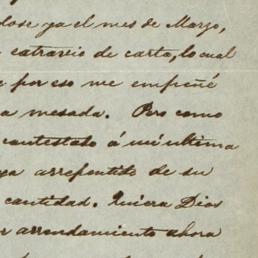 dose ya el mes de Marzo,
extravio de carta, lo cual
por eso me empeñé
a mesada. Pero como
contestado á mi última
ya arrepentido de su
cantidad. Quiera Dios
arrendamiento ahora